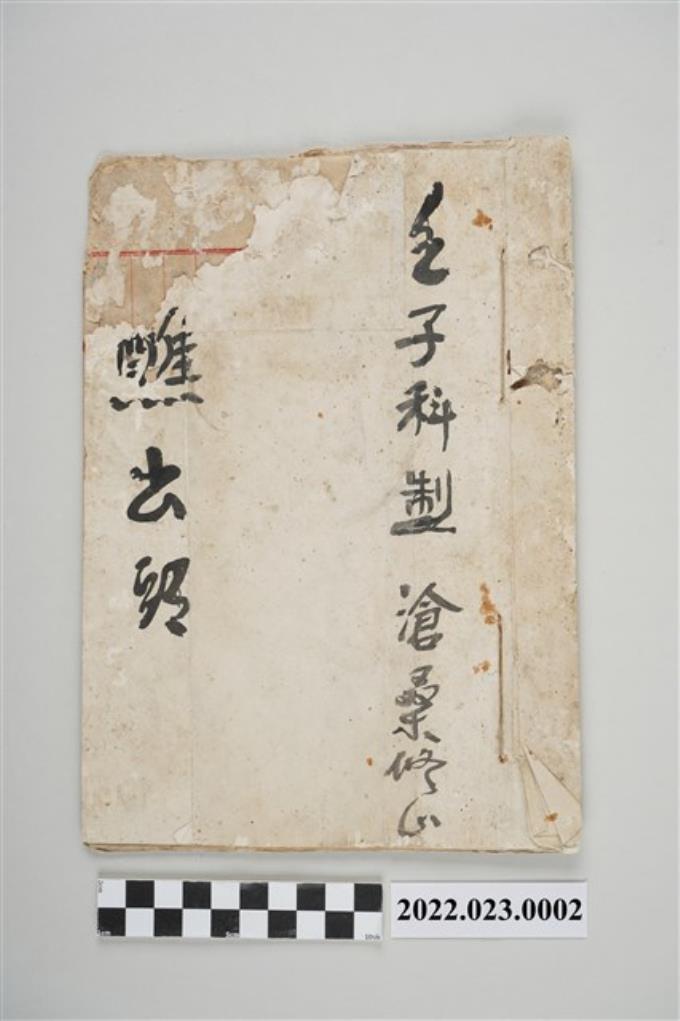 壬子科製 滄桑修
醮出頭
2022.023.0002